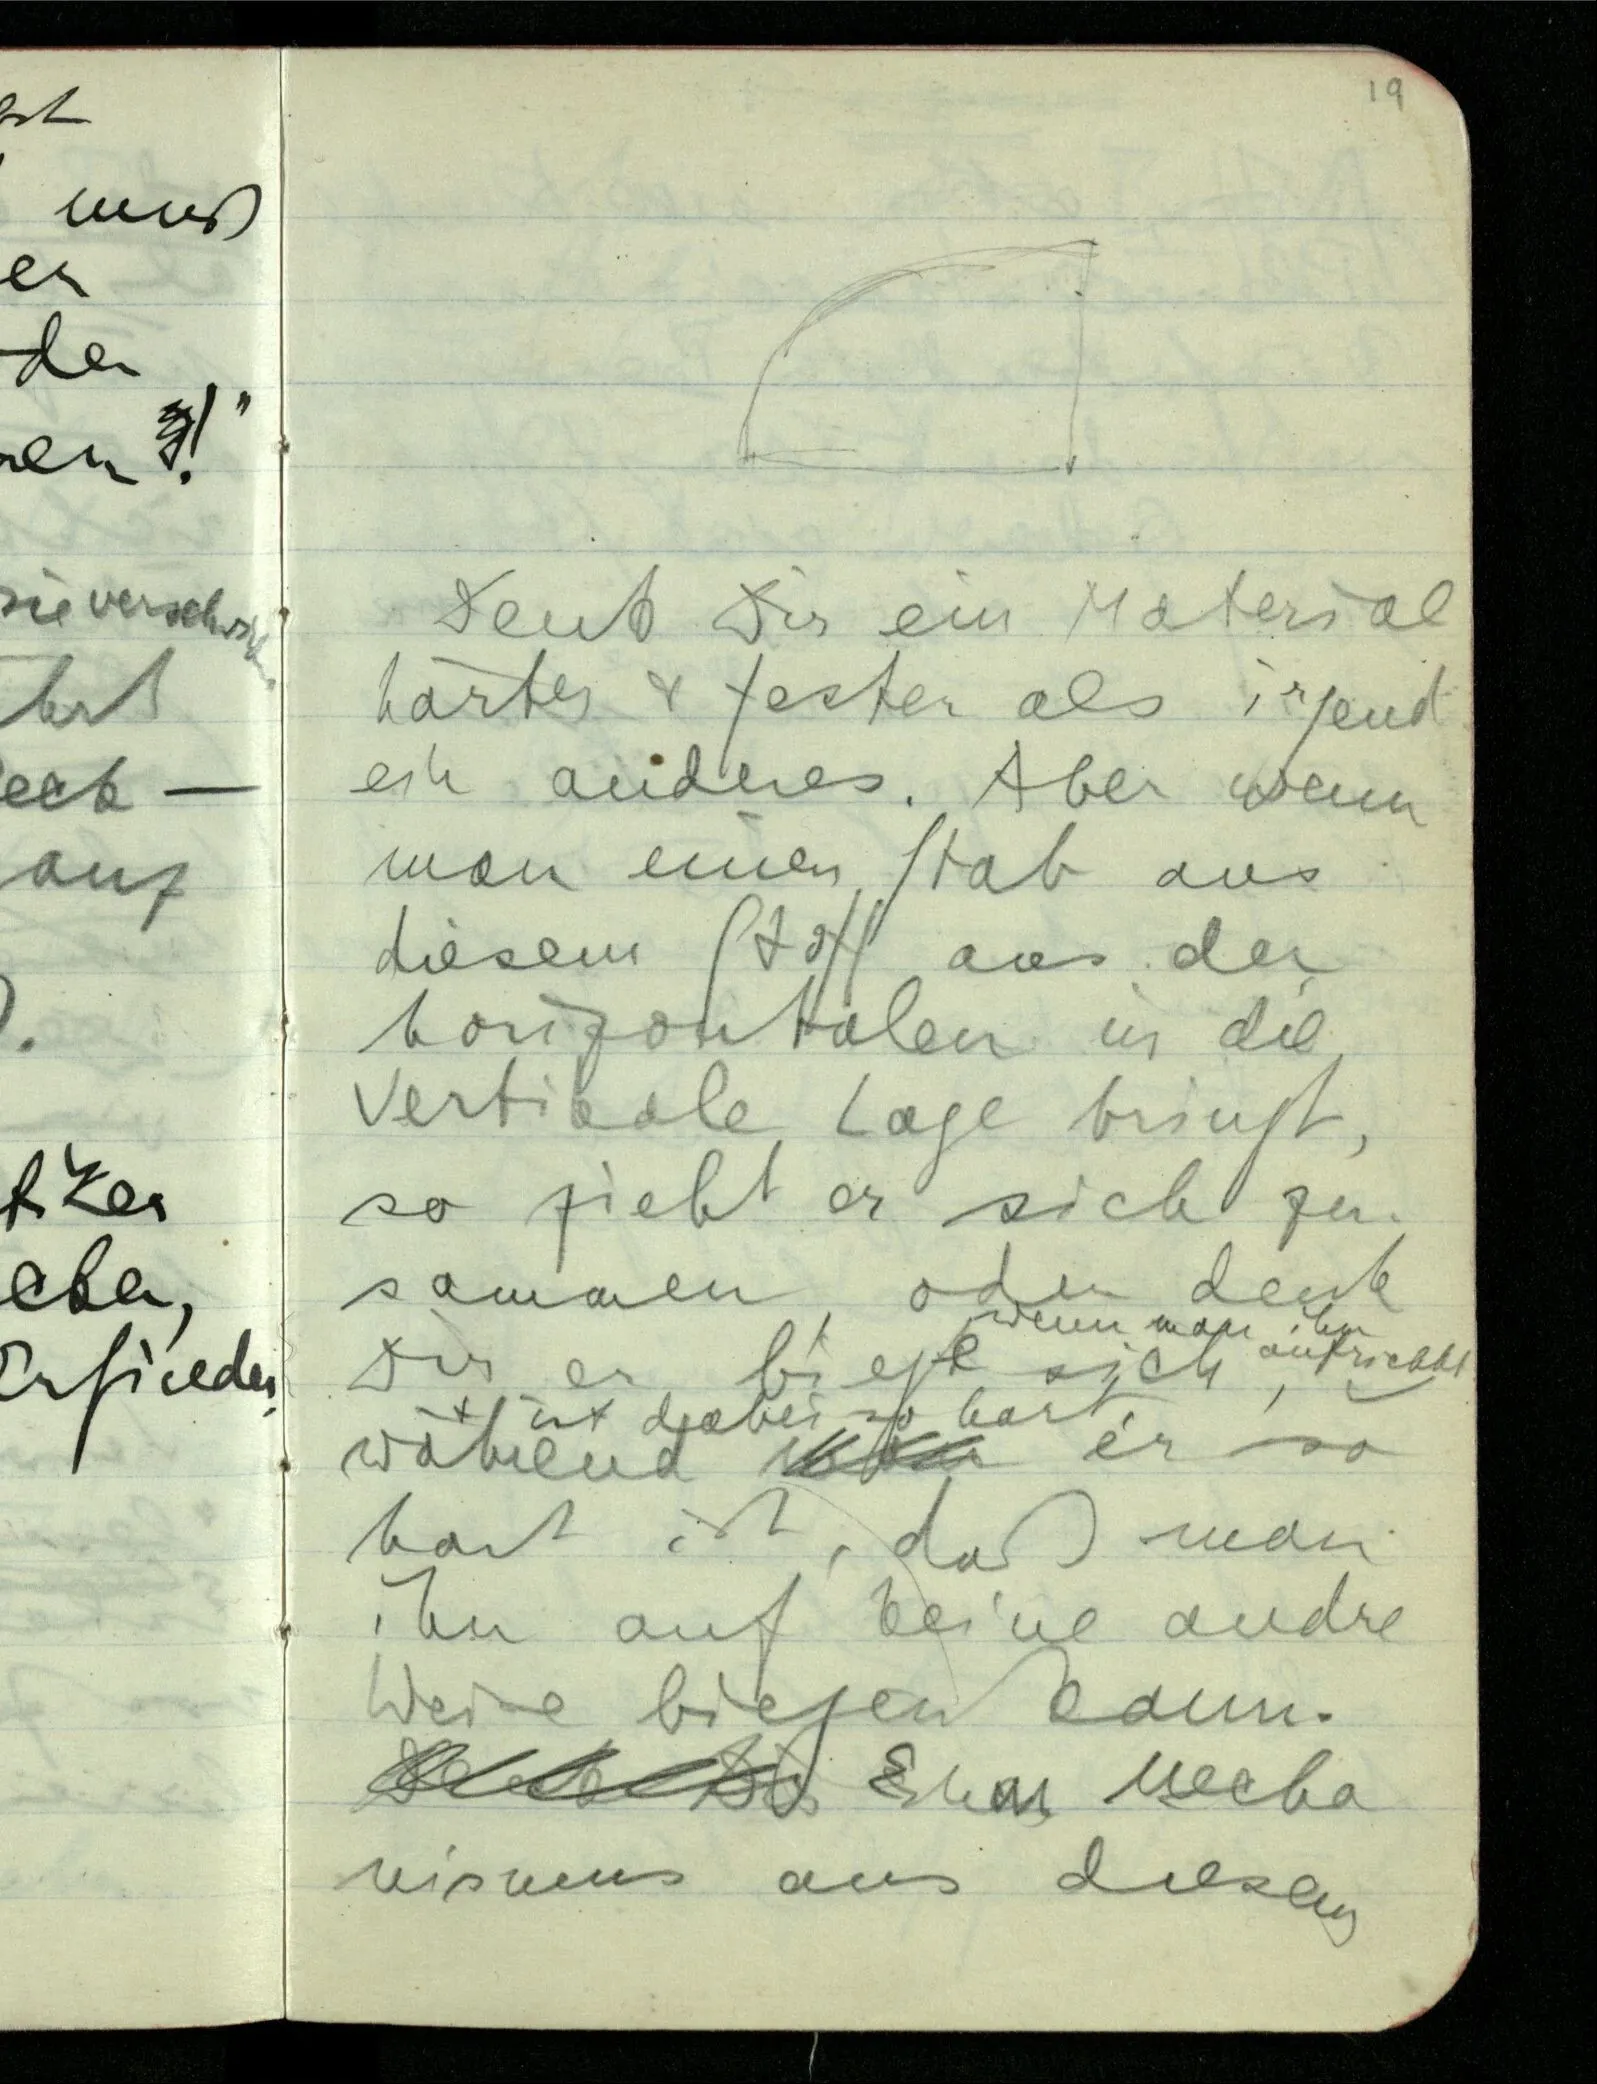 19
muß
er
den
nen ?!"
sie verschr
Eck —
auf
).
tzer
cken,
Erfinder
Denk Dir ein Material
härter & fester als irgend
ein anderes. Aber wenn
man einen Stab aus
diesem Stoff aus der
horizontalen in die
vertikale Lage bringt,
so zieht er sich zu-
sammen, oder denk
wenn man ihn
Dir er biegt sich, aufrichtet
& ist dabei so hart,
während er so
hart ist, daß man
ihn auf keine andre
Weise biegen kann.
Denke Dir Einen Mecha
nismus aus diesem